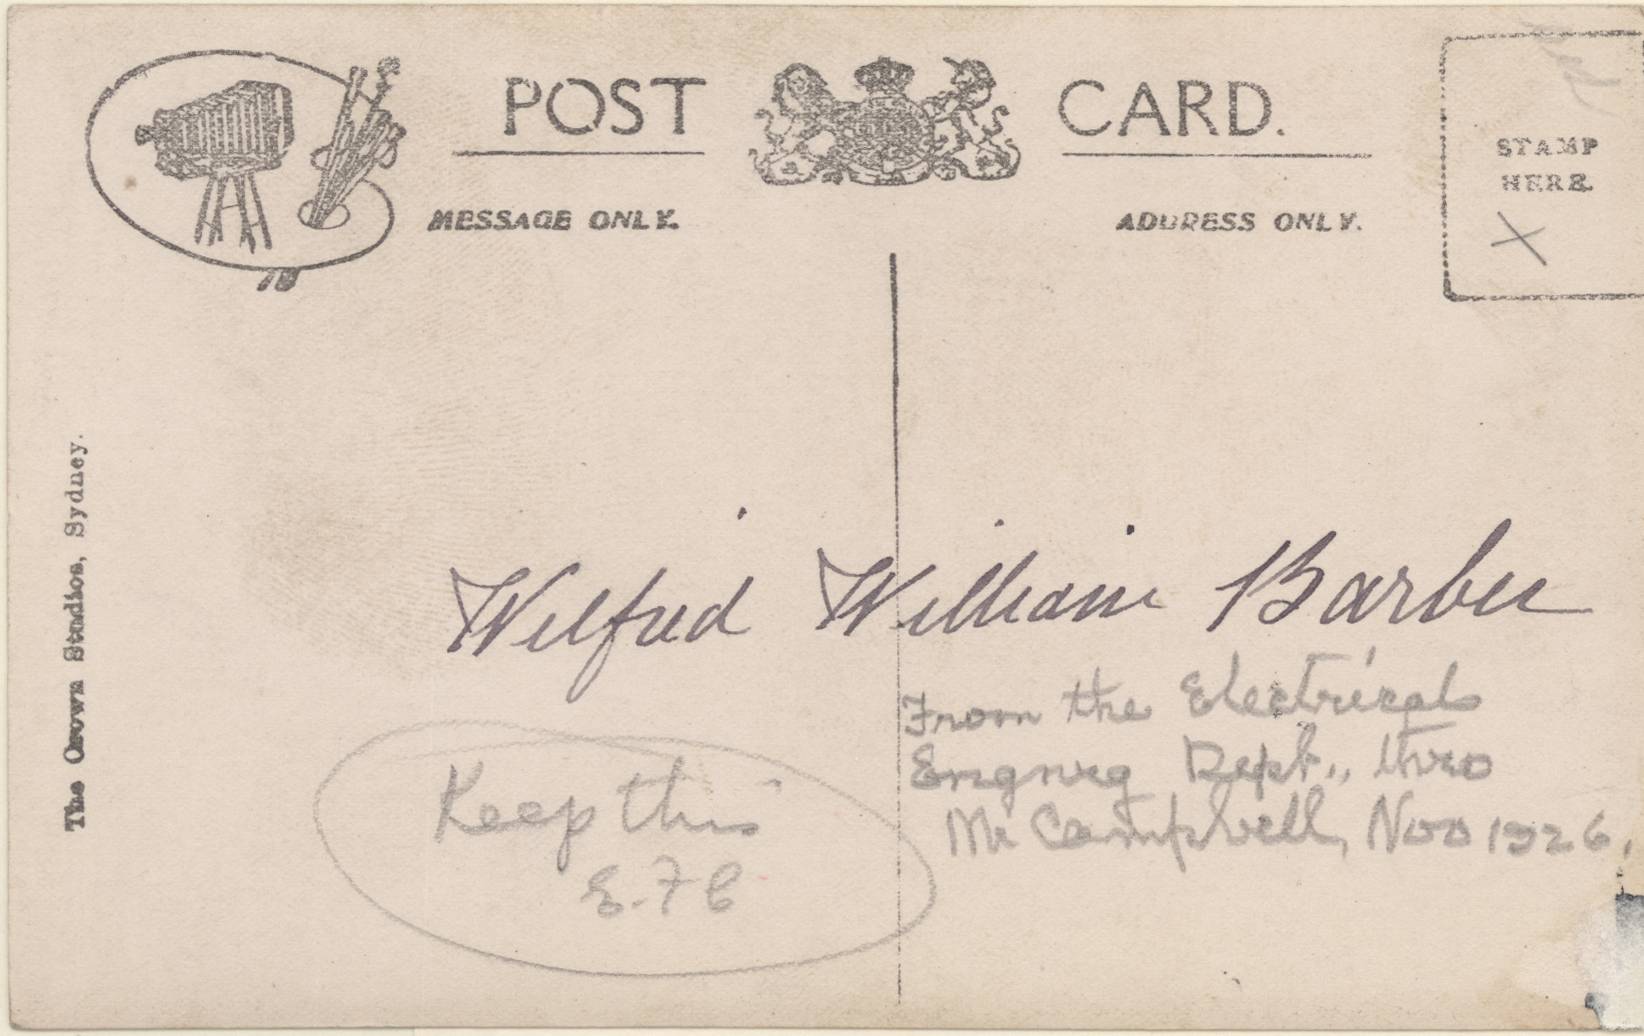 POST CARD.
STAMP
HERE.
MESSAGE ONLY.
ADDRESS ONLY.
The Crown Studios, Sydney.
Wilfred William Barber
From the Electrical
Engnrg Dept., thro
Mr Campbell, Nov 1926.
Keep this